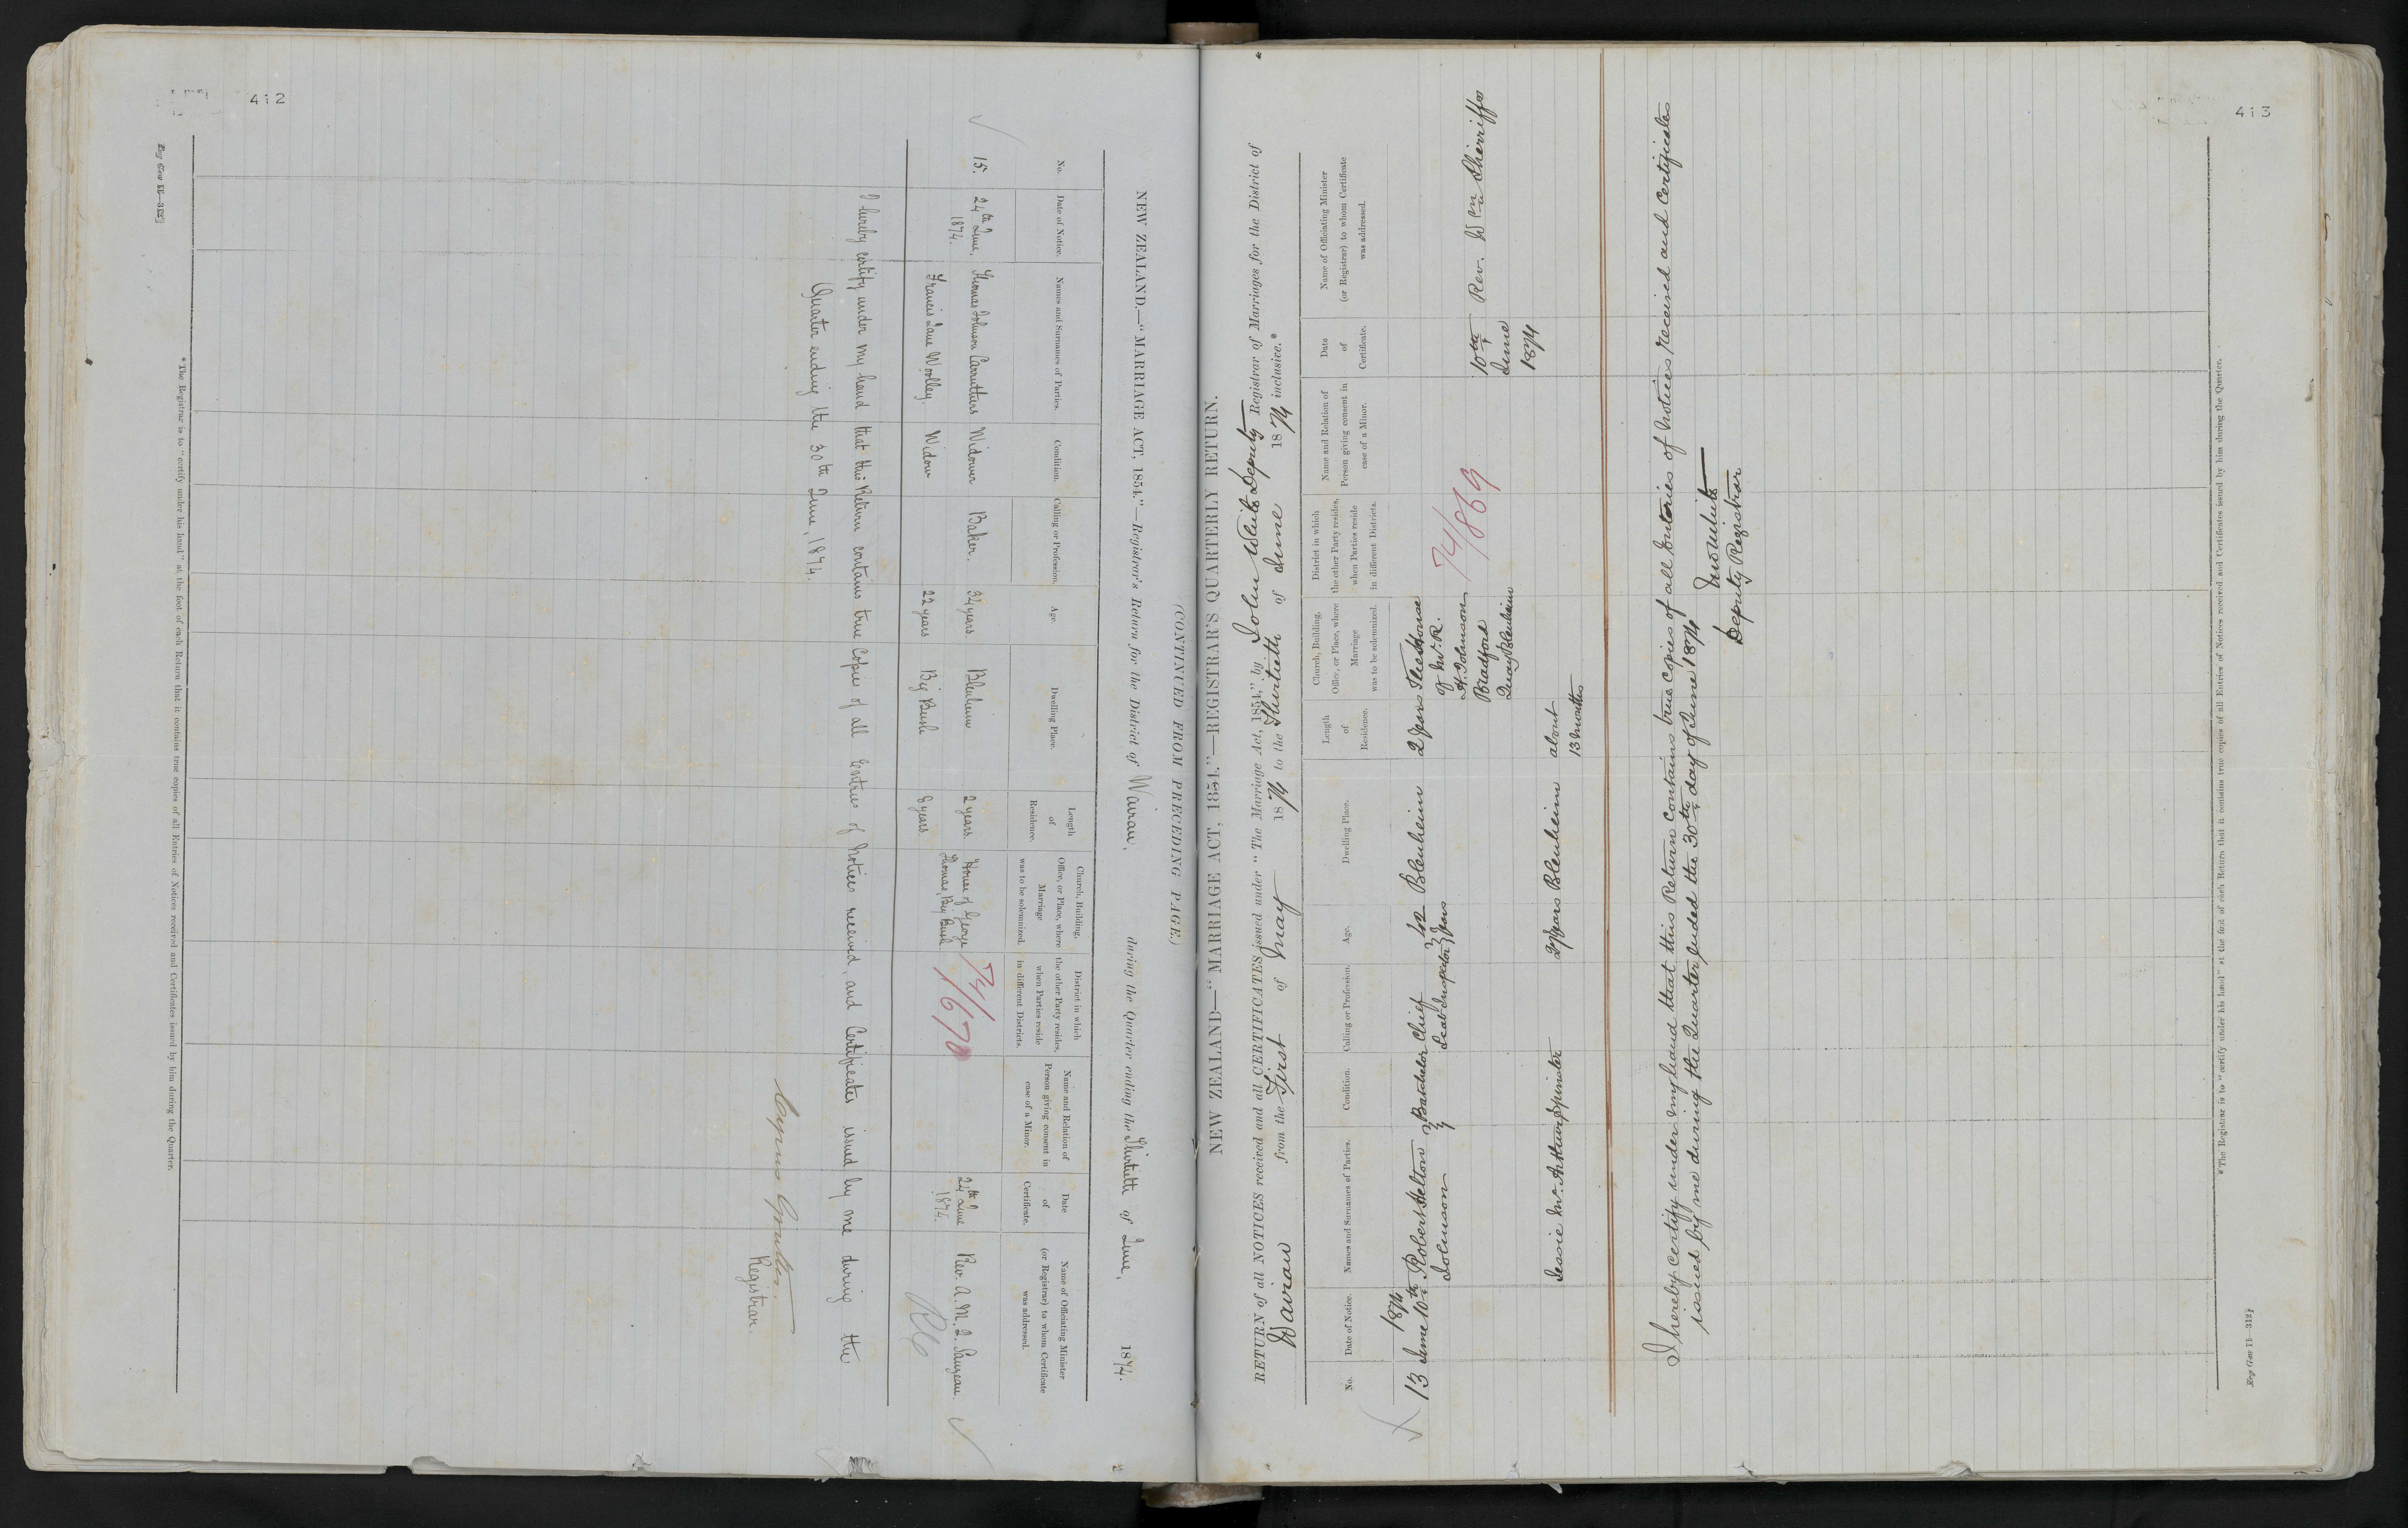 412
(CONTINUED FROM PRECEDING PAGE.)
NEW ZEALAND.—"MARRIAGE ACT, 1854."—Registrar's Return for the District of Wairau, during the Quarter ending the Thirtieth of June, 1874.
No.
Date of Notice.
Names and Surnames of Parties.
Condition.
Calling or Profession.
Age.
Dwelling Place.
Length of Residence.
Church, Building, Office, or Place, where Marriage was to be solemnized.
District in which the other Party resides, when Parties reside in different Districts.
Name and Relation of Person giving consent in case of a Minor.
Date of Certificate.
Name of Officiating Minister (or Registrar) to whom Certificate was addressed.
15. 24th June, 1874.
Thomas Johnson Carruthers Widower Baker. 34 years Blenheim 2 years
Francis Jane Woolley. Widow 22 years Big Bush 8 years
House of George Thomas, Big Bush
74/1670
24th June 1874.
Rev. A. M. J.
I hereby certify under my hand that this Return contains true Copies of all Entries of Notices received, and Certificates issued by me during the
Quarter ending the 30th June, 1874.
Cyrus Goulter.
Registrar.
*The Registrar is to "certify under his hand" at the foot of each Return that it contains true copies of all Entries of Notices received and Certificates issued by him during the Quarter.
413
NEW ZEALAND—"MARRIAGE ACT, 1854."—REGISTRAR'S QUARTERLY RETURN.
RETURN of all NOTICES received and all CERTIFICATES issued under "The Marriage Act, 1854," by John White Deputy Registrar of Marriages for the District of
Wairau from the First of May 1874 to the Thirtieth of June 1874 inclusive.*
No.
Date of Notice.
Names and Surnames of Parties.
Condition.
Calling or Profession.
Age.
Dwelling Place.
Length of Residence.
Church, Building, Office, or Place, where Marriage was to be solemnized.
District in which the other Party resides, when Parties reside in different Districts.
Name and Relation of Person giving consent in case of a Minor.
Date of Certificate.
Name of Officiating Minister (or Registrar) to whom Certificate was addressed.
1874
13 June 10th Robert Johnson Batchelor Chief Inspector 42 years Blenheim 2 years
The House of Mr. R. H. Johnson Bradford Quay Blenheim
74/869
10th June 1874
Rev. Wm Sherriffs
Jessie McArthur Spinster 27 years Blenheim about 13 months
I hereby certify under my hand that this Return contains true copies of all Entries of Notices received and Certificates
issued by me during the Quarter ended the 30th day of June 1874
Deputy Registrar
*The Registrar is to "certify under his hand" at the foot of each Return that it contains true copies of all Entries of Notices received and Certificates issued by him during the Quarter.